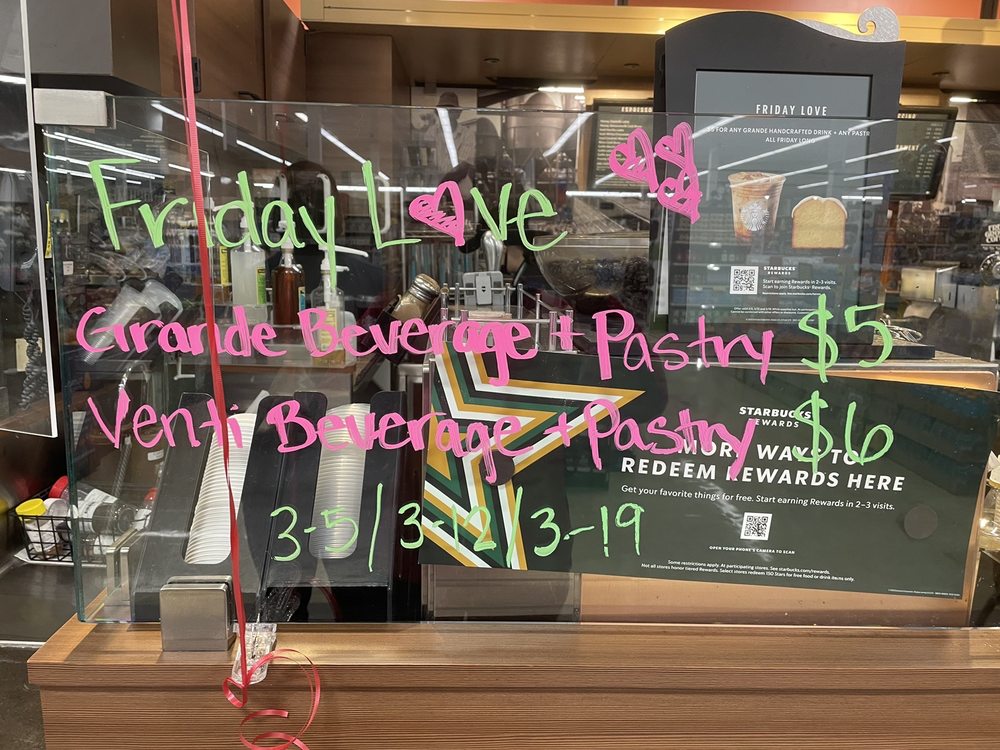 FRIDAY LOVE
$5 FOR ANY GRANDE HANDCRAFTED DRINK + ANY PASTR
ALL FRIDAY LONG
STARBUCKS
REWARDS
Start earning Rewards in 2-3 visits.
Scan to join Starbucks Rewards.
ESPRESSO
Friday Love
Grande Beverage + Pastry $5
Venti Beverage + Pastry $6
3-5/3-12/3-19
STARBUCKS
REWARDS
MORE WAYS TO
REDEEM REWARDS HERE
Get your favorite things for free. Start earning Rewards in 2–3 visits.
OPEN YOUR PHONE'S CAMERA TO SCAN
Some restrictions apply. At participating stores. See starbucks.com/rewards.
Not all stores honor tiered Rewards. Select stores redeem 150 Stars for free food or drink items only.